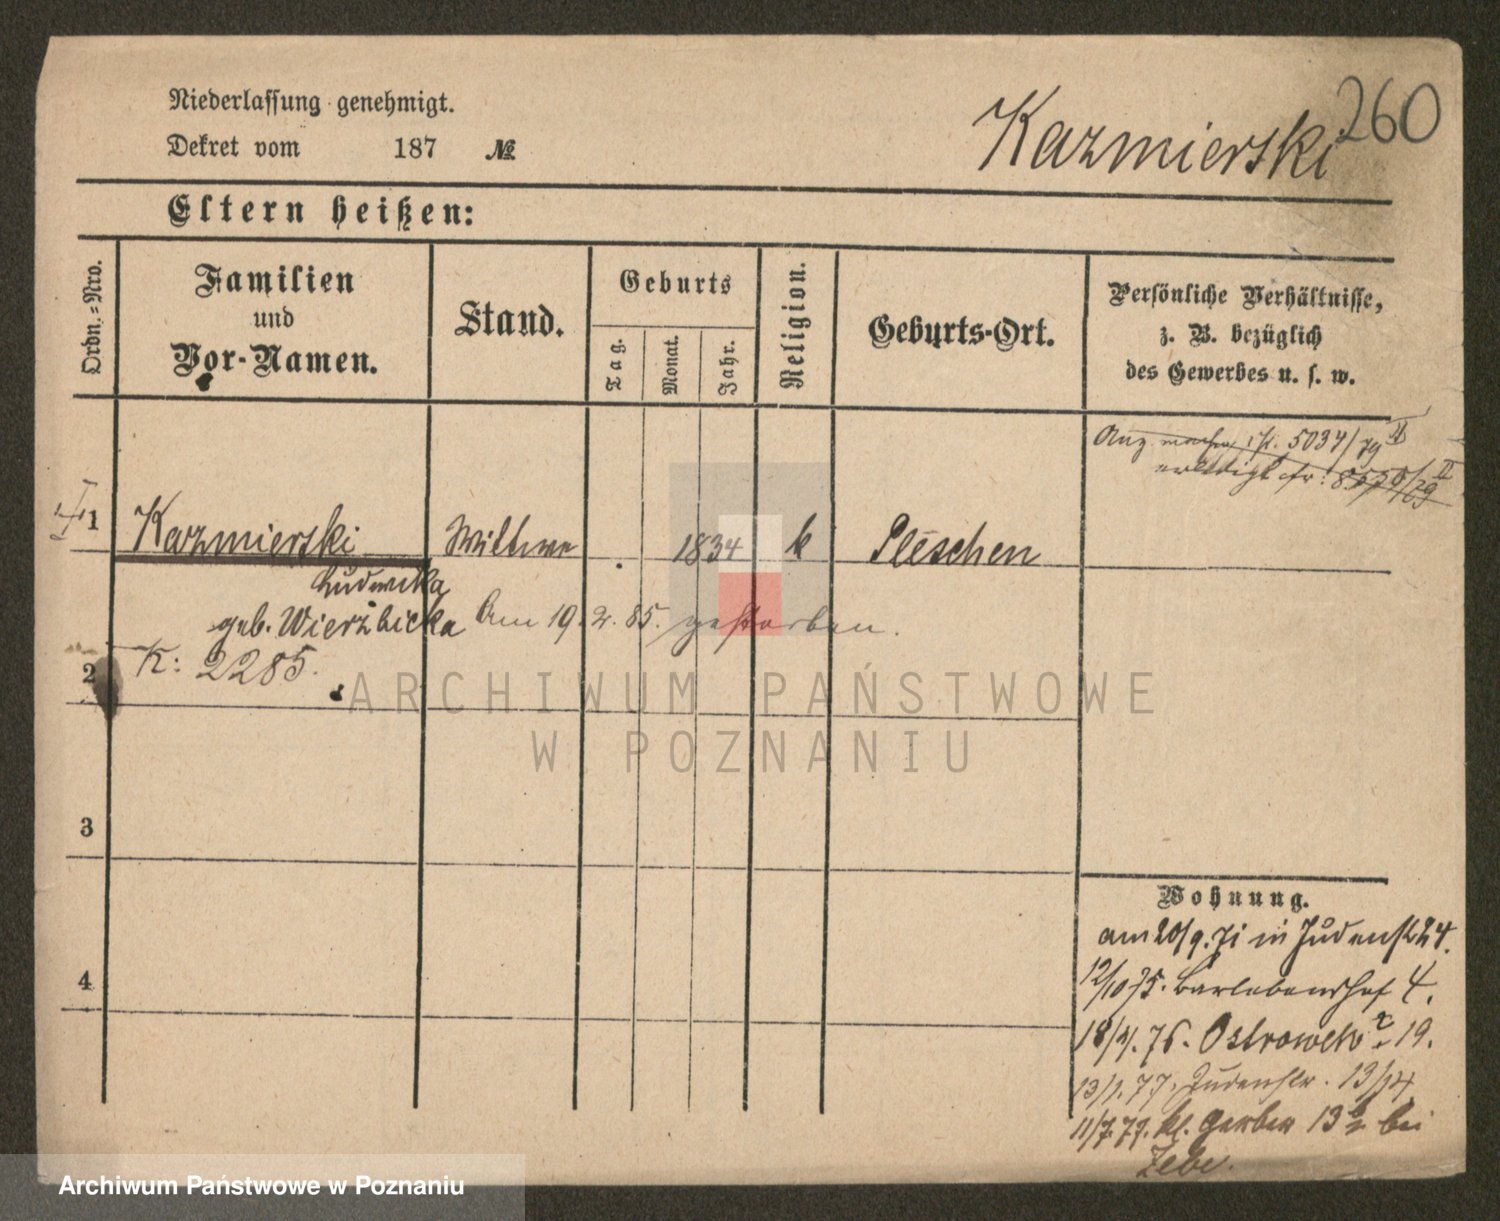 Niederlassung genehmigt.
Dekret vom 187 №
Kazmierski
260
Eltern heißen:
Ordn.=Nro.
Familien
und
Vor-Namen.
Stand.
Geburts
Tag.
Monat.
Jahr.
Religion.
Geburts-Ort.
Persönliche Verhältnisse,
z. B. bezüglich
des Gewerbes u. s. w.
5034/79 II
erledigt
1
Kazmierski
Wittwe
1834
k
Pleschen
Ludwika
geb. Wierzbicka
Am 19.2.85. gestorben.
2
K: 2285.
ARCHIWUM PAŃSTWOWE
W POZNANIU
3
4
Wohnung.
am 20/9. 71 in Judenst 24.
12/10 75. Barlebenshof 4.
18/4. 76. Ostrowek 19.
13/1. 77. Judenstr. 13/14
11/7. 79. kl. Gerber 13 bei
Zebe.
Archiwum Państwowe w Poznaniu